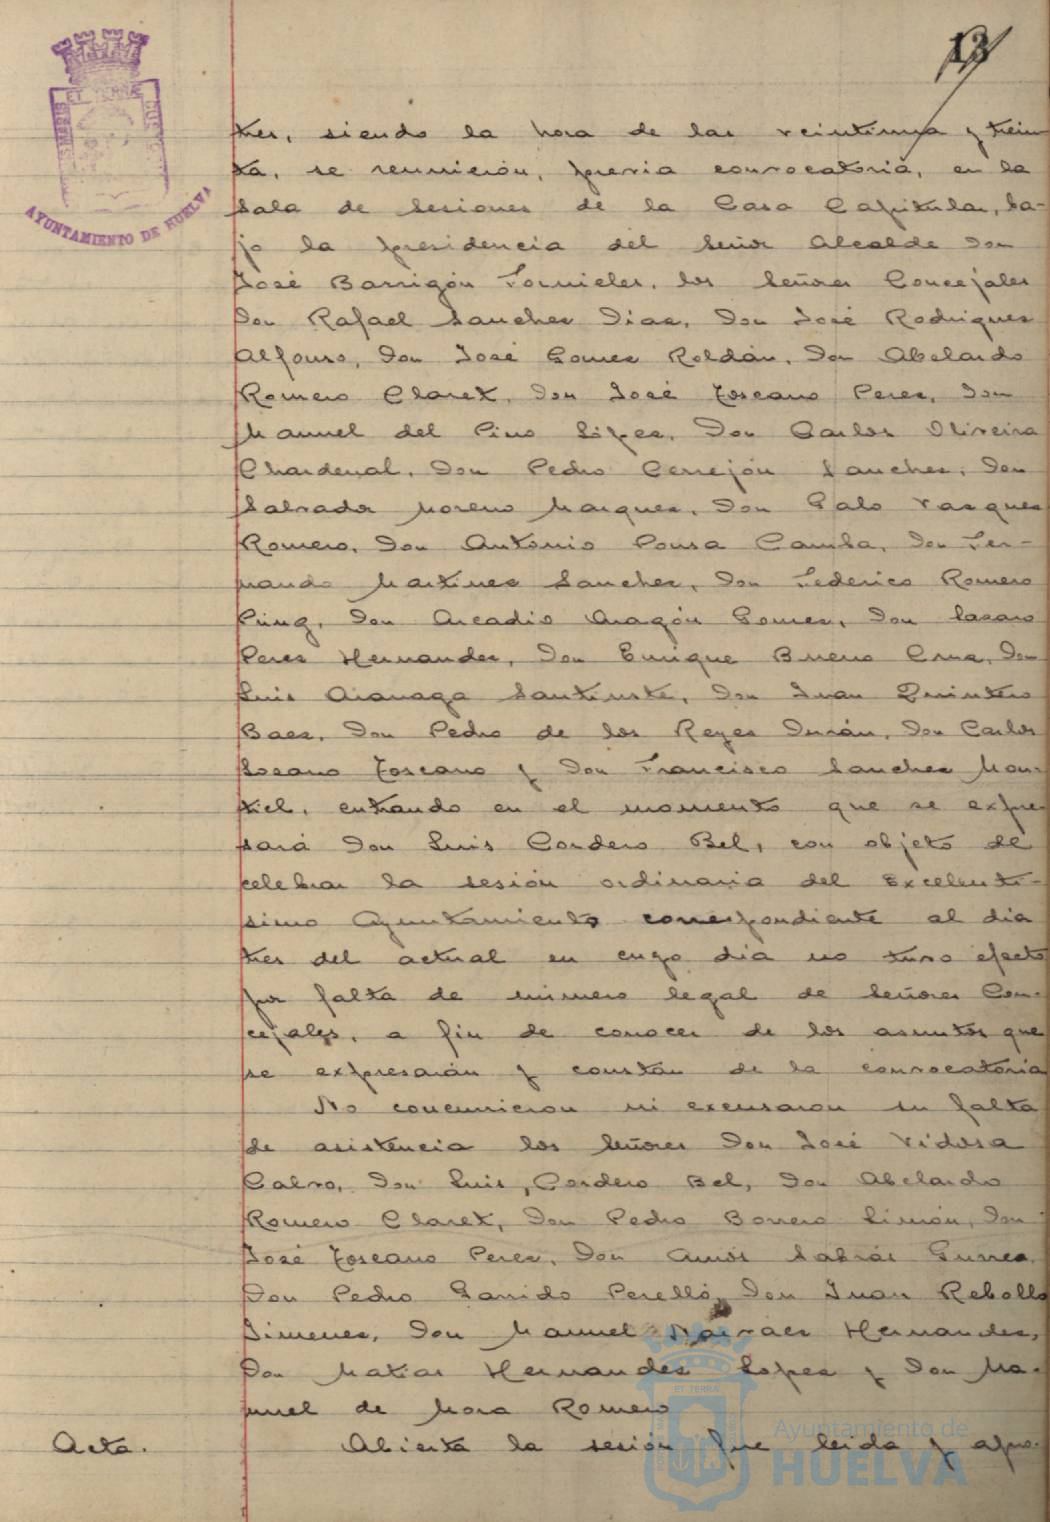 13
PORTUS MARIS ET TERRÆ CUSTODIA
AYUNTAMIENTO DE HUELVA
tres, siendo la hora de las veintiuna y trein-
ta, se reunieron, previa convocatoria, en la
Sala de Sesiones de la Casa Capitular, ba-
jo la presidencia del Señor Alcalde Don
José Barrigón Fornieles, los Señores Concejales
Don Rafael Sanchez Diaz, Don José Rodriguez
Alfonso, Don José Gomez Roldán, Don Abelardo
Romero Claret, Don José Toscano Perez, Don
Manuel del Pino López, Don Carlos Oliveira
Chardenal, Don Pedro Cerrejón Sanchez, Don
Salvador Moreno Marquez, Don Galo Vazquez
Romero, Don Antonio Pousa Camba, Don Fer-
nando Martinez Sanchez, Don Federico Romero
Puig, Don Arcadio Aragón Gomez, Don Lazaro
Perez Hernandez, Don Enrique Bueno Cruz, Don
Luis Aranaga Santiuste, Don Juan Quintero
Baez, Don Pedro de los Reyes Durán, Don Carlos
Lozano Toscano y Don Francisco Sanchez Mon-
tiel, entrando en el momento que se expre-
sará Don Luis Cordero Bel, con objeto de
celebrar la sesión ordinaria del Excelentí-
simo Ayuntamiento correspondiente al dia
tres del actual en cuyo dia no tuvo efecto
por falta de número legal de Señores Con-
cejales, a fin de conocer de los asuntos que
se expresarán y constan de la convocatoria
No concurrieron ni excusaron su falta
de asistencia los Señores Don José Vidosa
Calvo, Don Luis, Cordero Bel, Don Abelardo
Romero Claret, Don Pedro Borrero Limón, Don
José Toscano Perez, Don Amós Sabrás Gurrea,
Don Pedro Garrido Perelló, Don Juan Rebollo
Jimenez, Don Manuel Narvaez Hernandez,
Don Matias Hernandez Lopez y Don Ma-
nuel de Mora Romero
Acta.
Abierta la sesión fue leida y apro-
ET TERRÆ
Ayuntamiento de
HUELVA